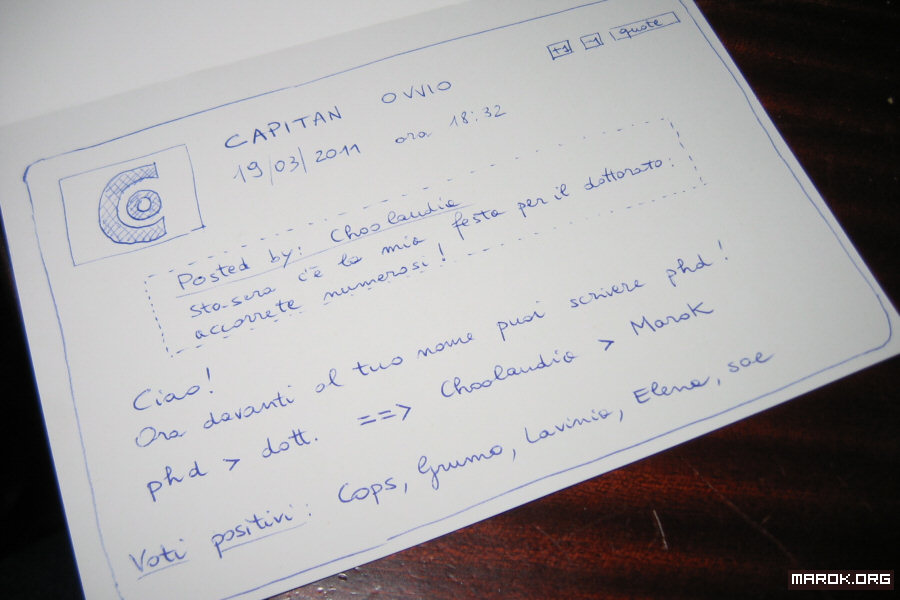 +1 -1 quote
CAPITAN OVVIO
19/03/2011 ora 18:32
Posted by: Choolaudia
sta-sera c'è la mia festa per il dottorato:
accorrete numerosi!
Ciao!
Ora davanti al tuo nome puoi scrivere phd!
phd > dott. ==> Choolaudia > Marok
Voti positivi: Cops, Grumo, Lavinia, Elena, sae
MAROK.ORG